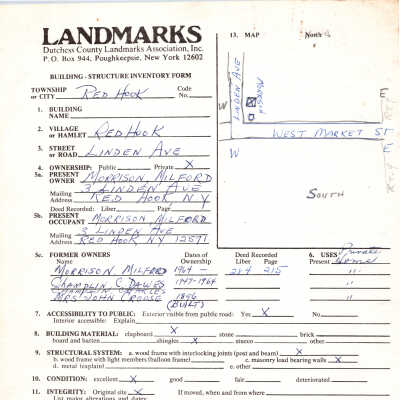 LANDMARKS
Dutchess County Landmarks Association, Inc.
P.O. Box 944, Poughkeepsie, New York 12602
BUILDING - STRUCTURE INVENTORY FORM
TOWNSHIP or CITY RED HOOK Code No.
1. BUILDING NAME
2. VILLAGE or HAMLET RED HOOK
3. STREET or ROAD LINDEN AVE
4. OWNERSHIP: Public Private X
5a. PRESENT OWNER MORRISON MILFORD
Mailing Address 3 LINDEN AVE
RED HOOK, NY
Deed Recorded: Liber Page
5b. PRESENT OCCUPANT MORRISON MILFORD
Mailing Address 3 LINDEN AVE
RED HOOK NY 12571
5c. FORMER OWNERS Dates of Ownership Deed Recorded
Name Liber Page
MORRISON MILFORD 1964 - 214 215
CHAMPLIN C DAWES 1947-1964
MRS JOHN CROUSE 1896 (BUILT)
13. MAP North
LINDEN AVE
W
WEST MARKET ST
E
W
SOUTH
RT 9
6. USES Private
Present Home
"
"
7. ACCESSIBILITY TO PUBLIC: Exterior visible from public road: Yes X No
Interior accessible: Explain
8. BUILDING MATERIAL: clapboard X stone brick
board and batten shingles X stucco other
9. STRUCTURAL SYSTEM: a. wood frame with interlocking joints (post and beam) X
b. wood frame with light members (balloon frame) c. masonry load bearing walls X
d. metal (explain) e. other
10. CONDITION: excellent X good fair deteriorated
11. INTEGRITY: Original site X If moved, when and from where
List major alterations and dates